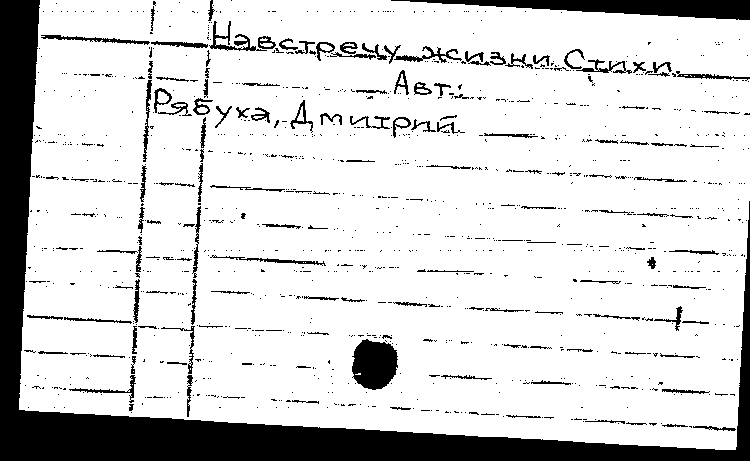 Навстречу жизни. Стихи.
Авт.:
Рябуха, Дмитрий